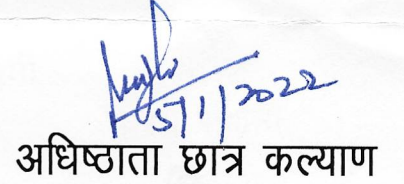 5/1/2022
अधिष्ठाता छात्र कल्याण